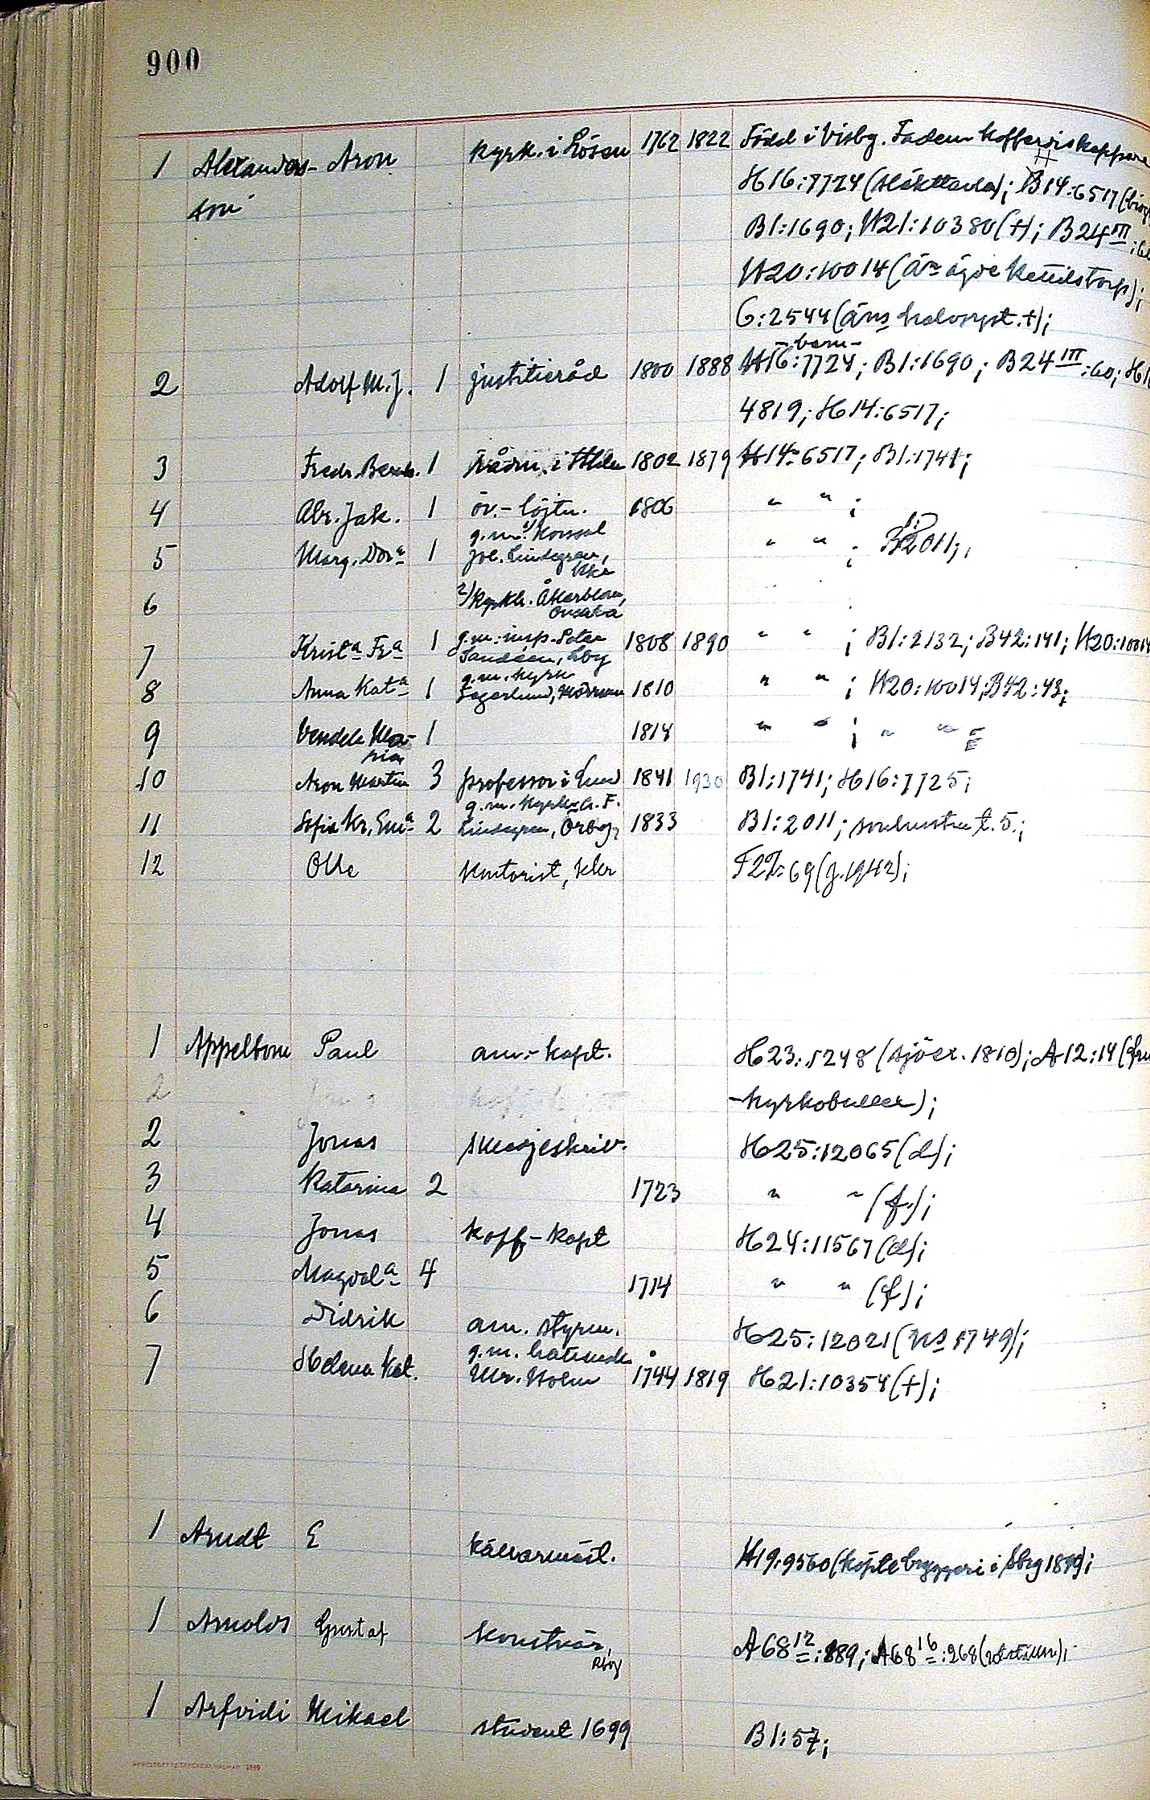 900
1 Alexanders- Aron kyrk. i Lösen 1762 1822 Född i Visby. Fadern kofferdiskeppare
son H16:7724 (släkttavla); B14:6517
B1:1690; H21:10380(†); B24III
H20:10014 (än ägde
G:2544 (äns halvsyst. †);
-barn-
2 Adolf M.J. 1 justitieråd 1800 1888 H16:7724; B1:1690; B24III:60; H16
4819; H14:6517;
3 Fredr. Bernh. 1 rådm. i Sthlm 1802 1879 H14:6517; B1:1741;
4 Abr. Jak. 1 öv.-löjtn. 1806 " " ;
g.m. 1/ konsul
5 Marg. Dora 1 Joe. Lindegren, " " ; B1:2011;
Kkr
6 2/ kyrkh. Åkerblom,
g.m. insp. Peter
7 Krista Fra 1 Sandéen, Lby 1808 1890 " " ; B1:2132; B42:141; H20:10014
g.m. kyrk
8 Anna Kata 1 Fagerlund, 1810 " " ; H20:10014; B42:43;
9 Vendela Ma- 1 1814 " " ; " "
ria
10 Aron Martin 3 professor i Lund 1841 1930 B1:1741; H16:7725;
g.m. kyrkh. A. F.
11 Sofia Kr. Emа 2 Lindegren, 1833 B1:2011; sonhustru t. 5.;
12 Olle Kontorist, Kkr F27:69 (f. 1942);
1 Appelbom Paul am.-kapt. H23:5248 (sjöex. 1810); A12:14
2 -kyrkobuller);
2 Jonas skeppsskriv. H25:12065 (d);
3 Katarina 2 1723 " " (f);
4 Jonas koff-kapt H24:11567 (d);
5 Magdala 4 1714 " " (f);
6 Didrik am. styrm. H25:12021 (1749);
g.m.
7 Helena Kat. Ulr. Holm 1744 1819 H21:10354 (†);
1 Arndt E källarmäst. H19:9560 (köpte bryggeri i
1 Arnolds Gustaf Konstnär, A68 12:889; A68 16:268 (utställn);
Rby
1 Arfvidi Mikael student 1699 B1:57;